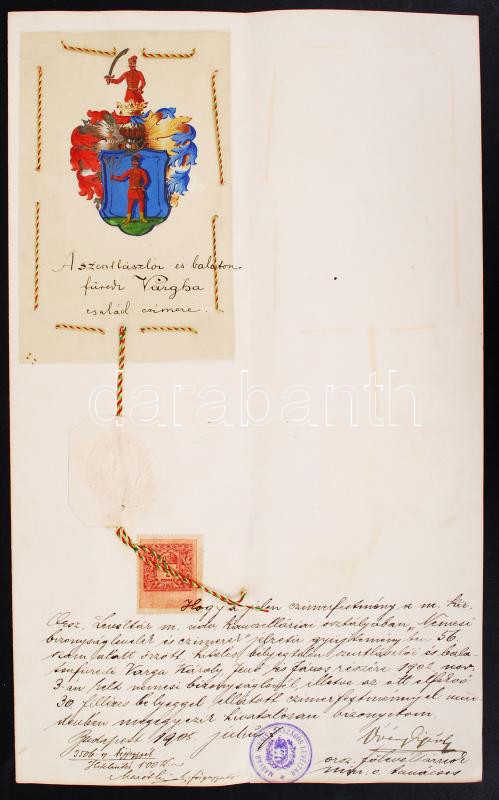 A szentlászlói és balaton-
füredi Vargha
család czímere.
darabanth
Hogy a jelen czímerfestmény a m. kir.
Orsz. Levéltár m. udv. Kanczelláriai osztályában, "Nemesi
bizonyságlevelek és czímerek" jelzetű gyűjtemény ben 56.
szám alatt őrzött hiteles szentlászlói és bala-
tonfüredi Varga Károly Jenő és János részére 1902. nov.
3-án kelt nemesi bizonyságlevél, illetve az ott
30 filléres bélyeggel ellátott czímerfestménynyel min-
denben megegyezik hivatalosan bizonyítom.
Budapest 1905
3506.
MAGYAR ORSZÁGOS LEVÉLTÁR
orsz.
min. o. tanácsos